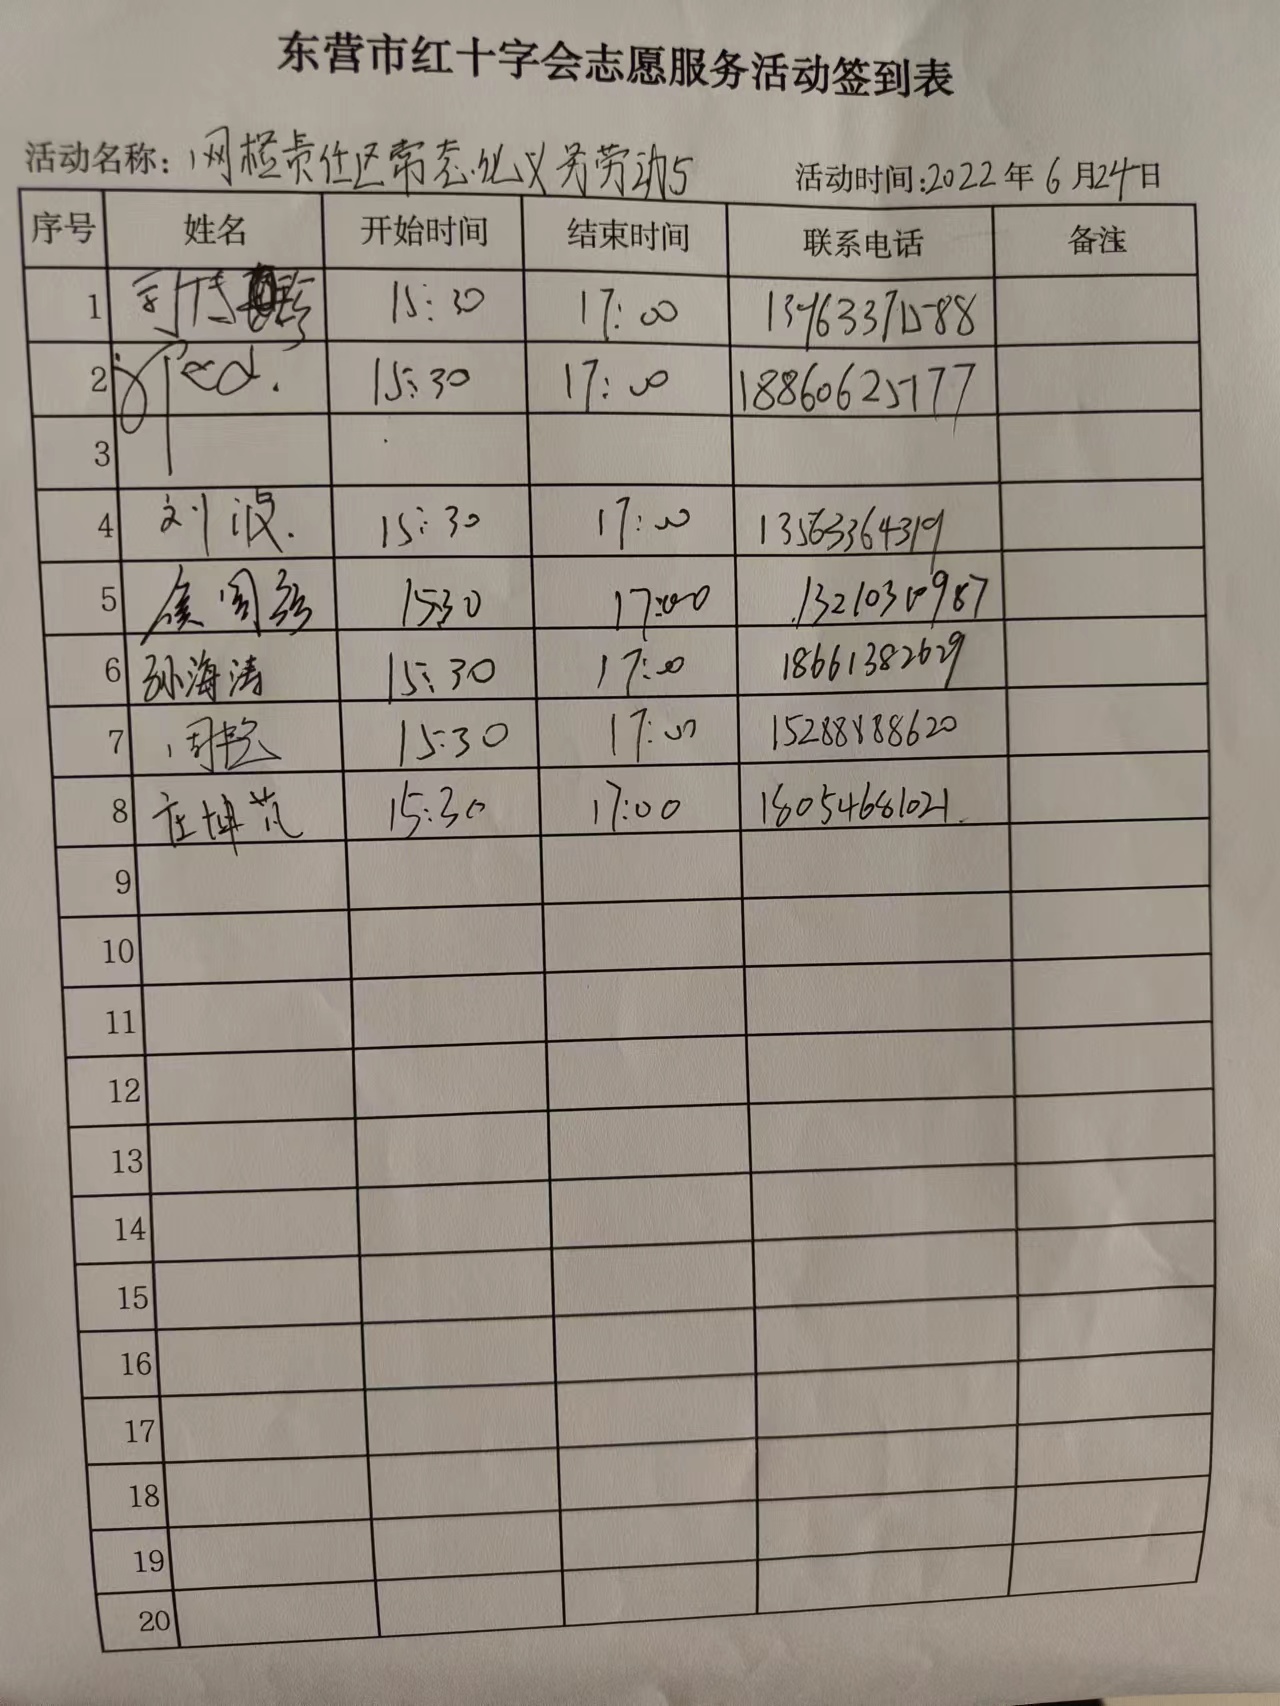 东营市红十字会志愿服务活动签到表
活动名称：网格责任区常态化义务劳动5 活动时间：2022年6月24日
序号 姓名 开始时间 结束时间 联系电话 备注
1 15:30 17:00
2 15:30 17:00 18860625777
3
4 刘波. 15:30 17:00 13563364319
5 侯国强 1530 17:00 13210310987
6 孙海涛 15:30 17:00 18661382629
7 周艳 15:30 17:00 15288888620
8 庄坤芃 15:30 17:00 18054681021.
9
10
11
12
13
14
15
16
17
18
19
20